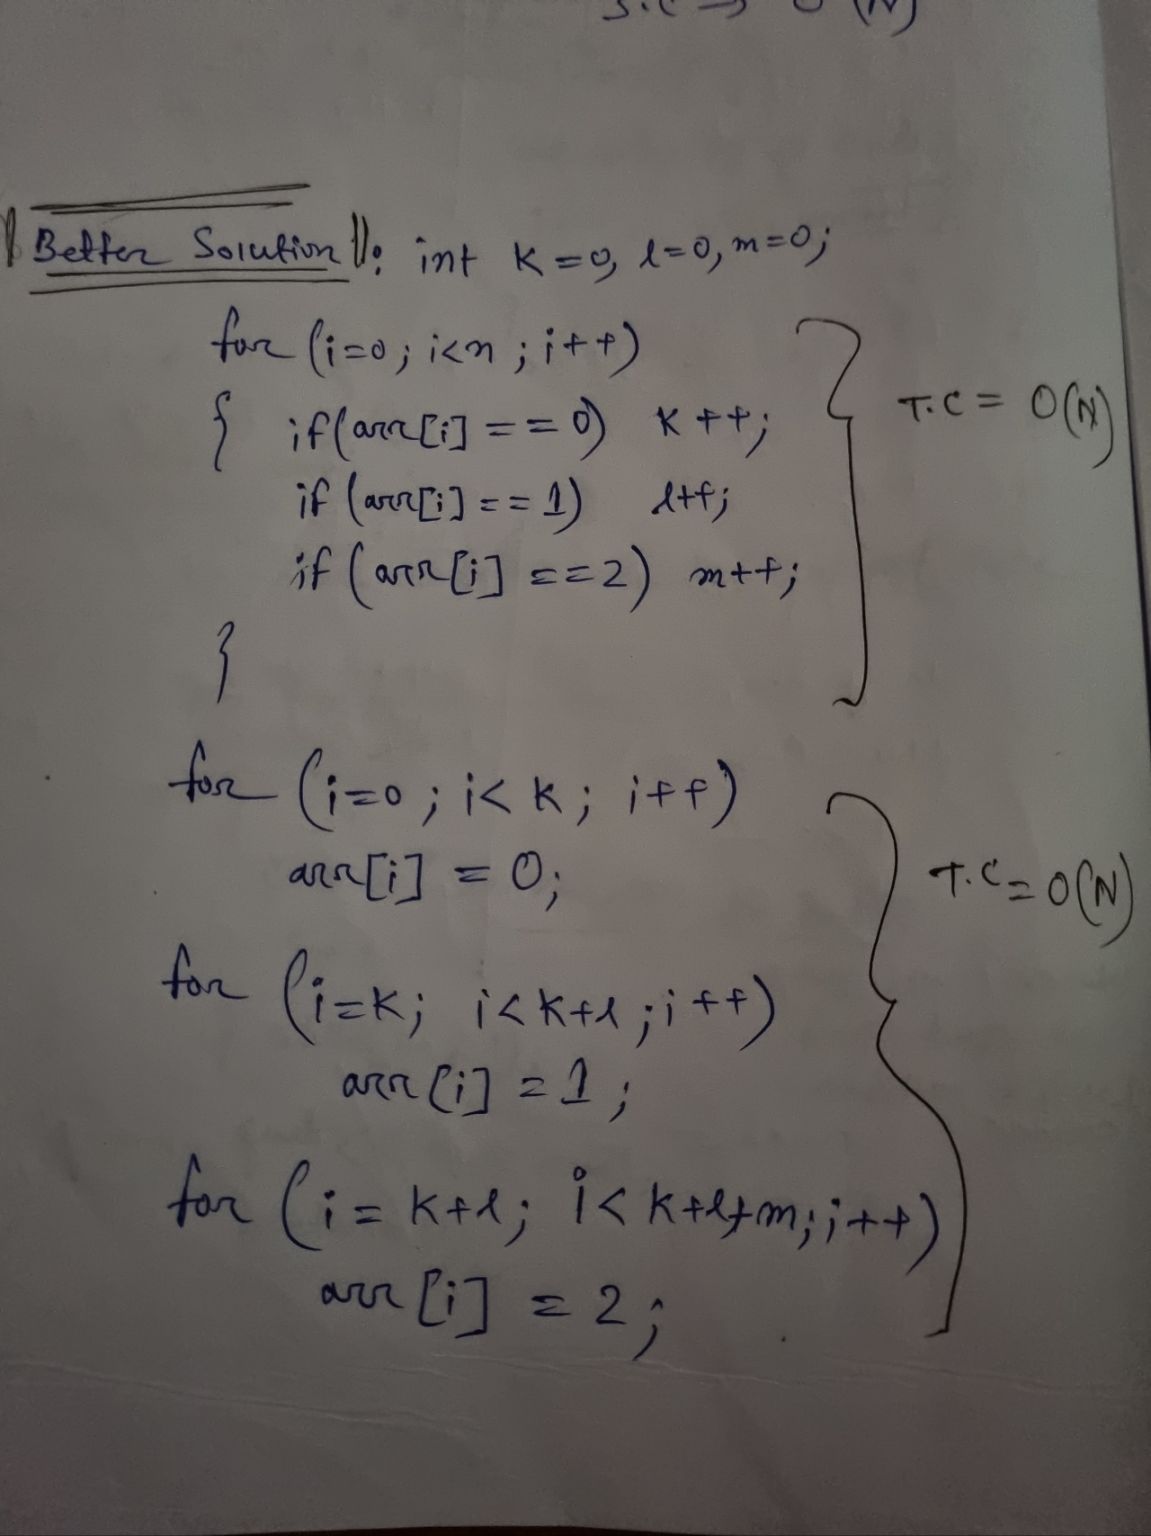 S.C → O(N)
Better Solution: int k=0, l=0, m=0;
for (i=0; i<n; i++)
{ if(arr[i] == 0) k++; T.C = O(N)
if (arr[i] == 1) l++;
if (arr[i] == 2) m++;
}
for (i=0; i<k; i++)
arr[i] = 0; T.C = O(N)
for (i=k; i<k+l; i++)
arr[i] = 1;
for (i=k+l; i<k+l+m; i++)
arr[i] = 2;